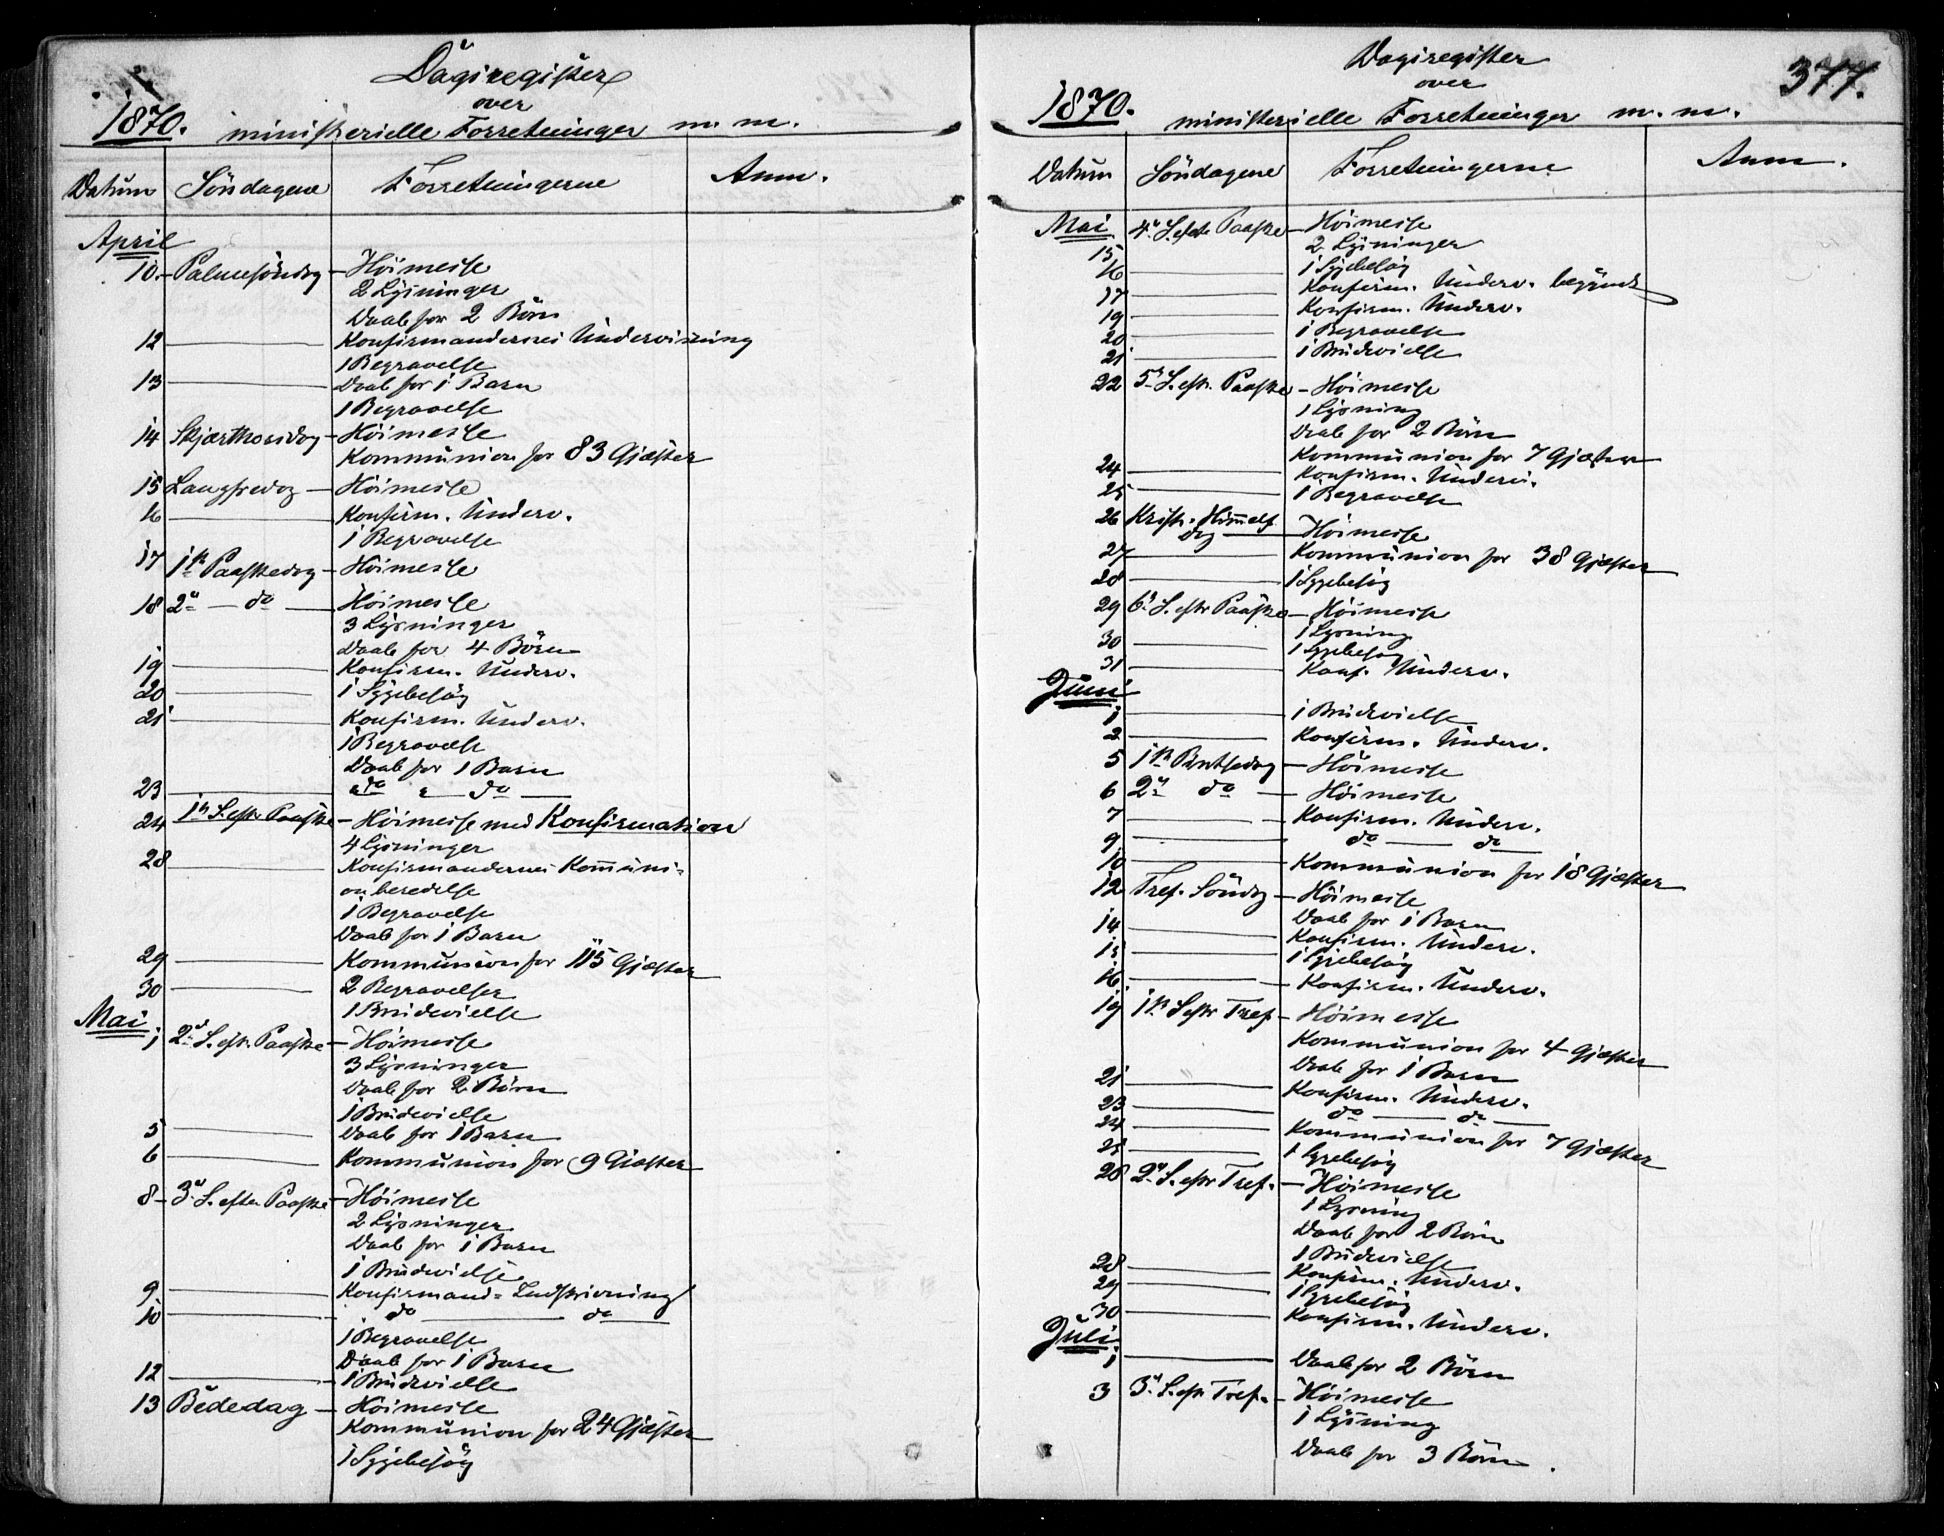 Dagsregister
over
1870. ministerielle Forretninger m. m.
Datum Söndagene Forretningerne Anm.
April
10. Palmesöndag – Höimesse
2 Lysninger
Daab for 2 Börn
12 — Konfirmandernes Undervisning
1 Begravelse
13 — Daab for 1 Barn
1 Begravelse
14 Skjærthorsdag – Höimesse
Kommunion for 83 Gjæster
15 Langfredag – Höimesse
16 — Konfirm. Underv.
1 Begravelse
17 1ste Paaskedag – Höimesse
18 2n — do — Höimesse
3 Lysninger
Daab for 4 Börn
19 — Konfirm. Underv.
20 — 1 Sygebesög
21 — Konfirm. Underv.
1 Begravelse
Daab for 1 Barn
23 — do — do —
24 1n S. eftr. Paaske – Höimesse med Konfirmation
4 Lysninger
28 — Konfirmandernes Kommuni-
onberedelse
1 Begravelse
Daab for 1 Barn
29 — Kommunion for 115 Gjæster
30 — 2 Begravelser
1 Brudevielse
Mai
1 2n S. eft. Paaske – Höimesse
3 Lysninger
Daab for 2 Börn
1 Brudevielse
5 — Daab for 1 Barn
6 — Kommunion for 9 Gjæster
8 – 3n S. efter Paaske – Höimesse
2 Lysninger
Daab for 1 Barn
1 Brudevielse
9 — Konfirmand-Indskrivning
10 — do — do
1 Begravelse
Daab for 1 Barn
12 — 1 Brudevielse
13 Bededag – Höimesse
Kommunion for 24 Gjæster
1 Sygebesög
Dagsregister 377.
over
1870. ministerielle Forretninger m. m.
Datum Söndagene Forretningerne Anm.
Mai 4n S. eft. Paaske – Höimesse
15 2 Lysninger
16 — 1 Sygebesög
17 — Konfirm. Underv. begyndt
19 — Konfirm. Underv.
20 — 1 Begravelse
21 — 1 Brudevielse
22 5n S. eft. Paaske – Höimesse
1 Lysning
Daab for 2 Börn
Kommunion for 7 Gjæster
24 — Konfirm. Underv.
25 — 1 Begravelse
26 Krist. Himmelf.
dag — Höimesse
27 — Kommunion for 38 Gjæster
28 — 1 Sygebesög
29 6n S. eftr Paaske – Höimesse
1 Lysning
30 — 1 Sygebesög
31 — Konf. Underv.
Juni
1 — 1 Brudevielse
2 — Konfirm. Underv.
5 1ste Pintsedag – Höimesse
6 2n do — Höimesse
7 — Konfirm. Underv.
9 — do — do
10 — Kommunion for 18 Gjæster
12 Tref. Söndag – Höimesse
Daab for 1 Barn
14 — Konfirm. Underv.
15 — 1 Sygebesög
16 — Konfirm. Underv.
19 1n S. eftr Tref – Höimesse
Kommunion for 4 Gjæster
Daab for 1 Barn
21 — Konfirm. Underv.
23 — do — do
24 — Kommunion for 7 Gjæster
25 — 1 Sygebesög
26 2n S. eftr Tref. – Höimesse
1 Lysning
Daab for 2 Börn
1 Brudevielse
28 — Konfirm. Underv.
29 — 1 Sygebesög
30 — Konfirm. Underv.
Juli
1 — Daab for 2 Börn
3 3n S. eft. Tref. – Höimesse
1 Lysning
Daab for 3 Börn.